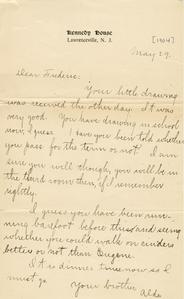 Kennedy House
Lawrenceville, N. J.
[1904]
May 29.
Dear Frederic:
Your little drawing
was received the other day. It was
very good. You have drawing in school
now, I guess. Have you been told whether
you pass for the term or not. I am
sure you will though, you will be in
the third room then, if I remember
rightly.
I guess you have been run-
ning barefoot before this and seeing
whether you could walk on cinders
better or not than Eugene.
It is dinner time now so I
must go
Your brother
Aldo